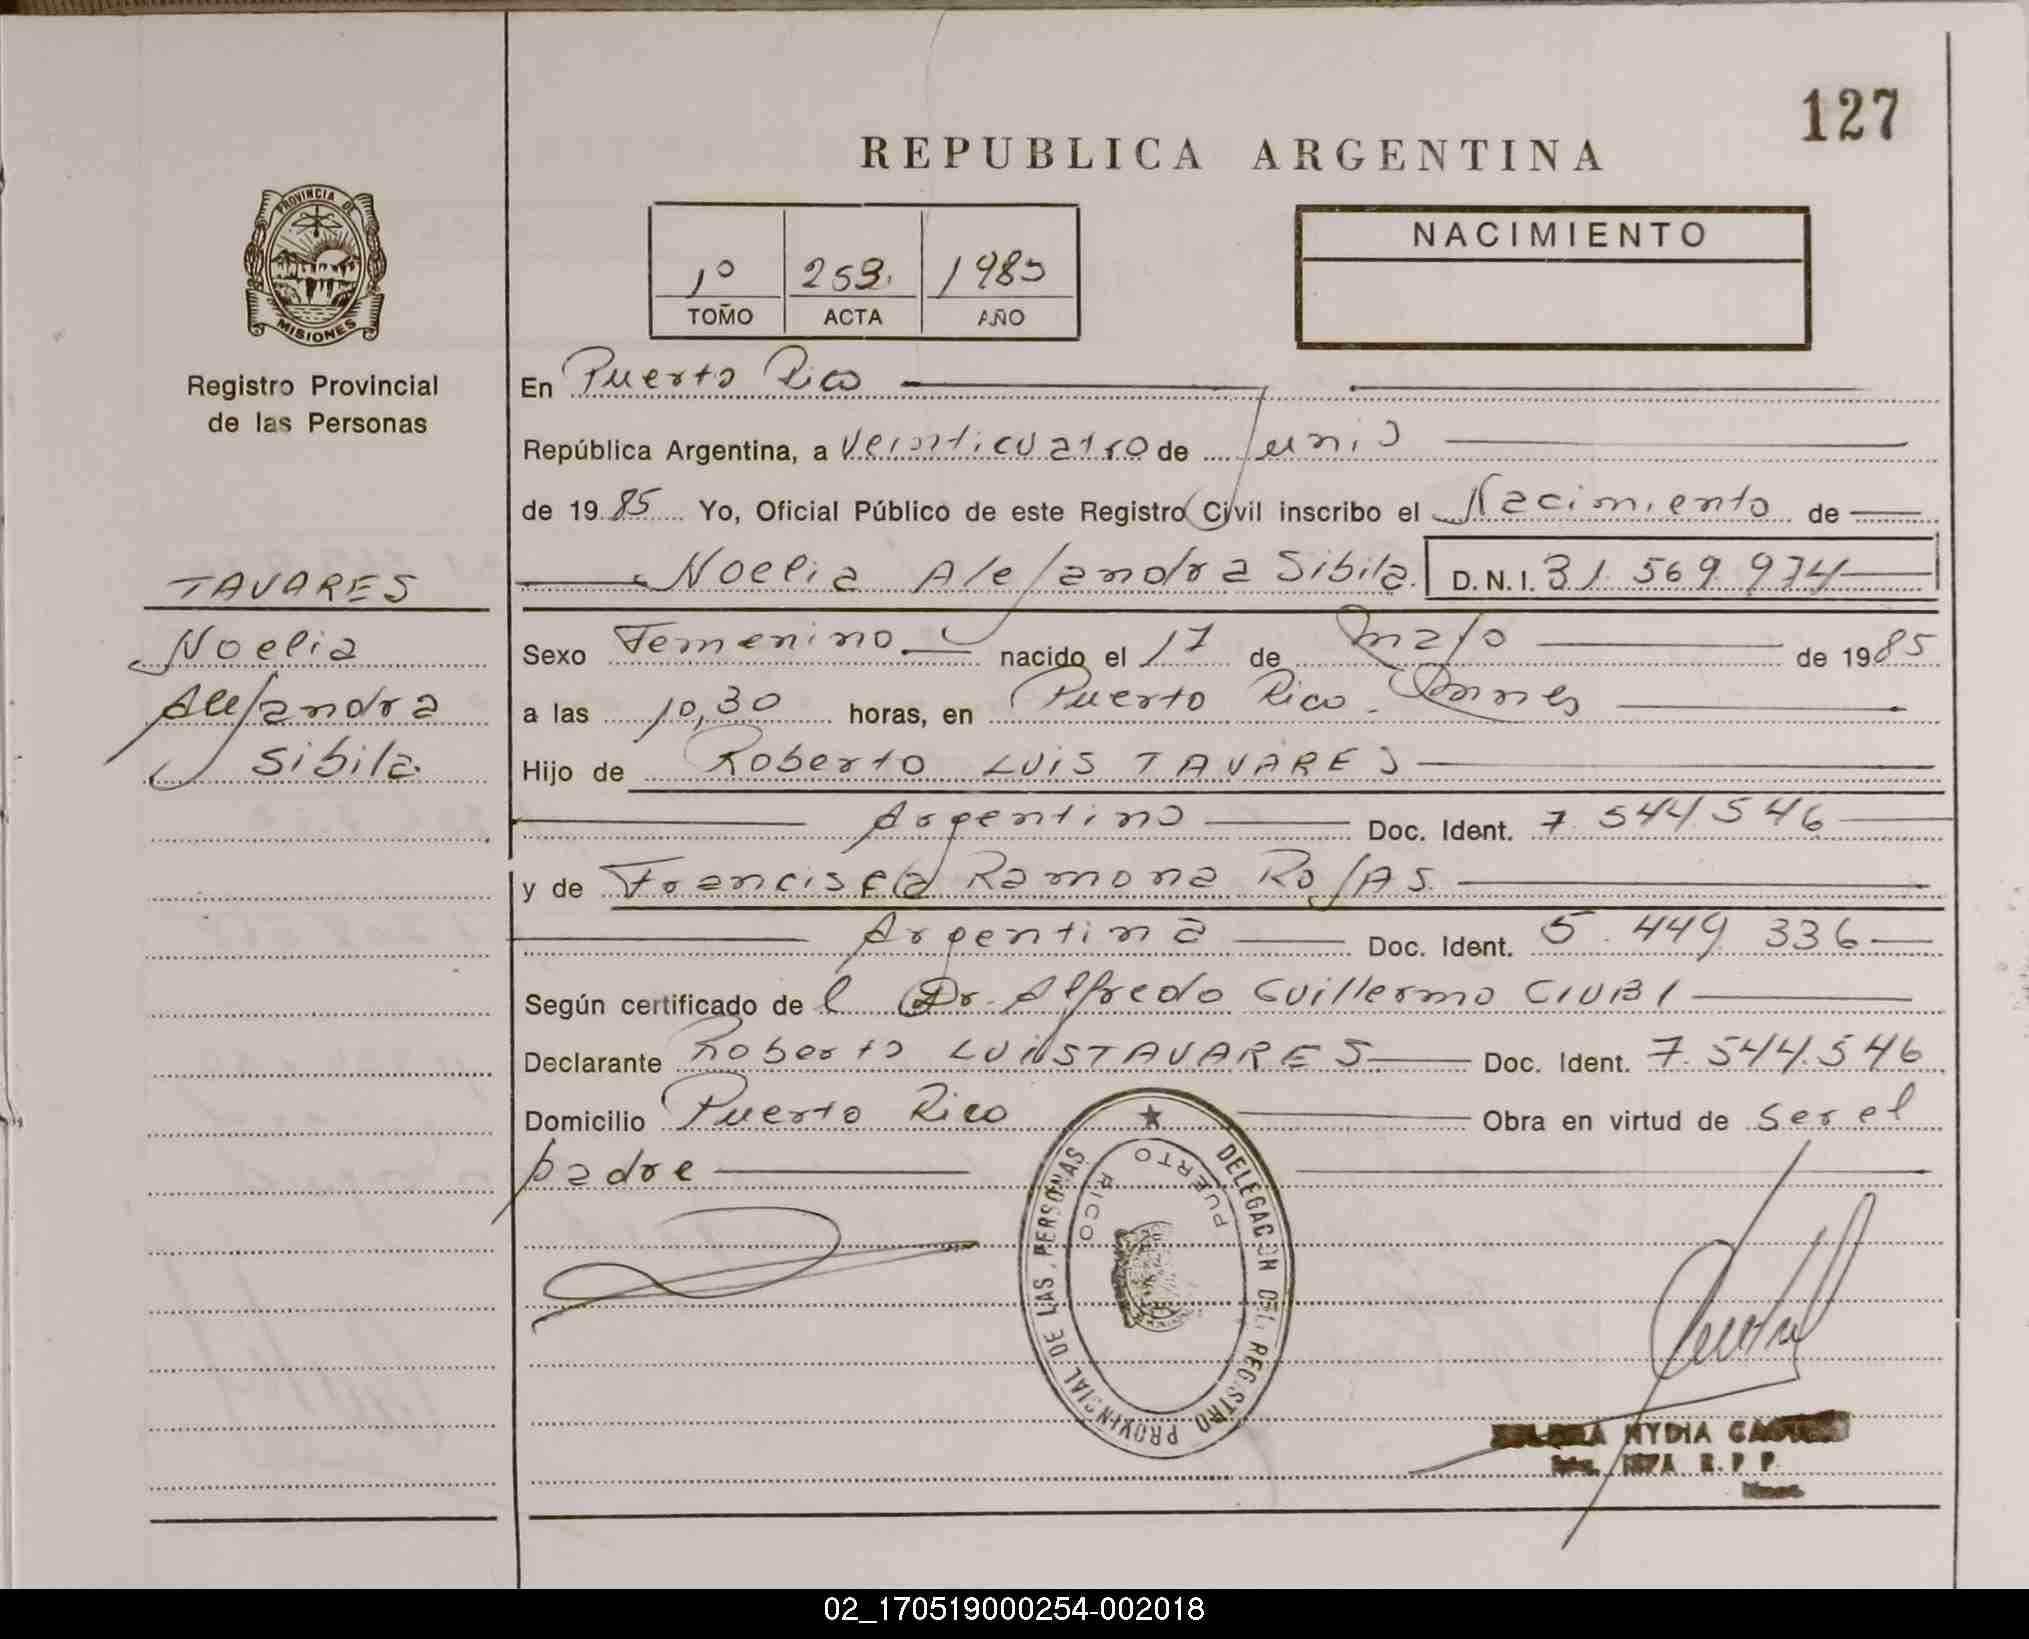 127
REPUBLICA ARGENTINA
PROVINCIA DE
MISIONES
Registro Provincial
de las Personas
1º 253. 1985
TOMO ACTA AÑO
NACIMIENTO
En Puerto Rico
República Argentina, a veinticuatro de Junio
de 1985 Yo, Oficial Público de este Registro Civil inscribo el Nacimiento de
Noelia Alejandra Sibila. D.N.I. 31.569.974
TAVARES
Noelia
Alejandra
Sibila.
Sexo Femenino nacido el 17 de mayo de 1985
a las 10,30 horas, en Puerto Rico.
Hijo de Roberto LUIS TAVARES
Argentino Doc. Ident. 7.544.546
y de Francisca Ramona ROJAS.
Argentina Doc. Ident. 5.449.336
Según certificado de l Dr. Alfredo Guillermo CIUBI
Declarante Roberto LUIS TAVARES Doc. Ident. 7.544.546
Domicilio Puerto Rico Obra en virtud de ser el
padre
DELEGACION DEL REGISTRO PROVINCIAL DE LAS PERSONAS
PUERTO RICO
NYDIA
R.P.P.
02_170519000254-002018